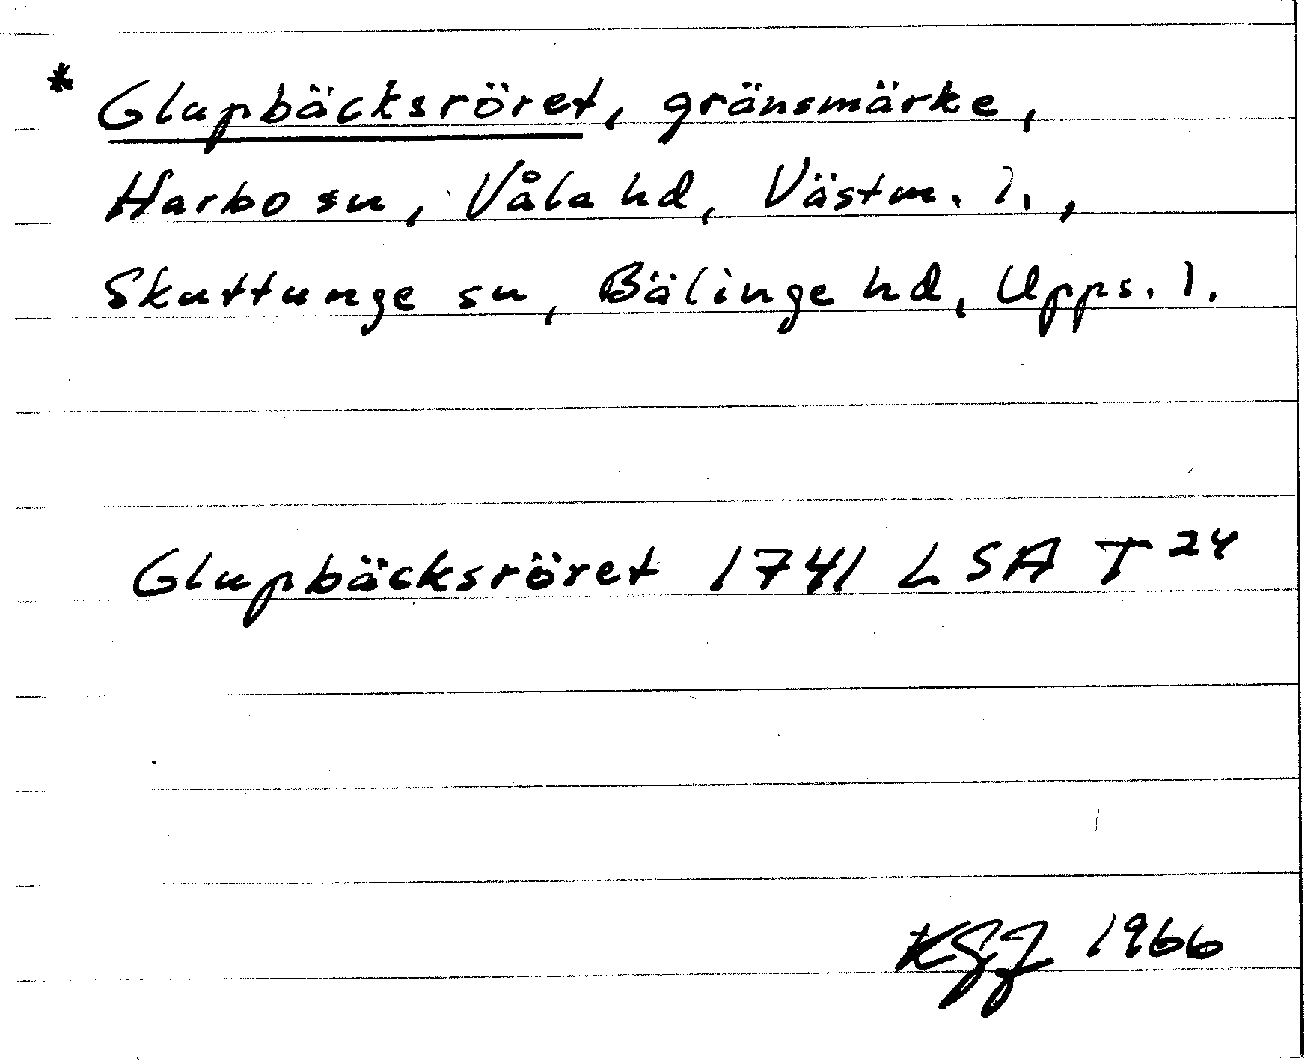 * Glupbäcksröret, gränsmärke,
Harbo sn, Våla hd, Västm. l.,
Skuttunge sn, Bälinge hd, Upps. l.
Glupbäcksröret 1741 LSA T 24
1966